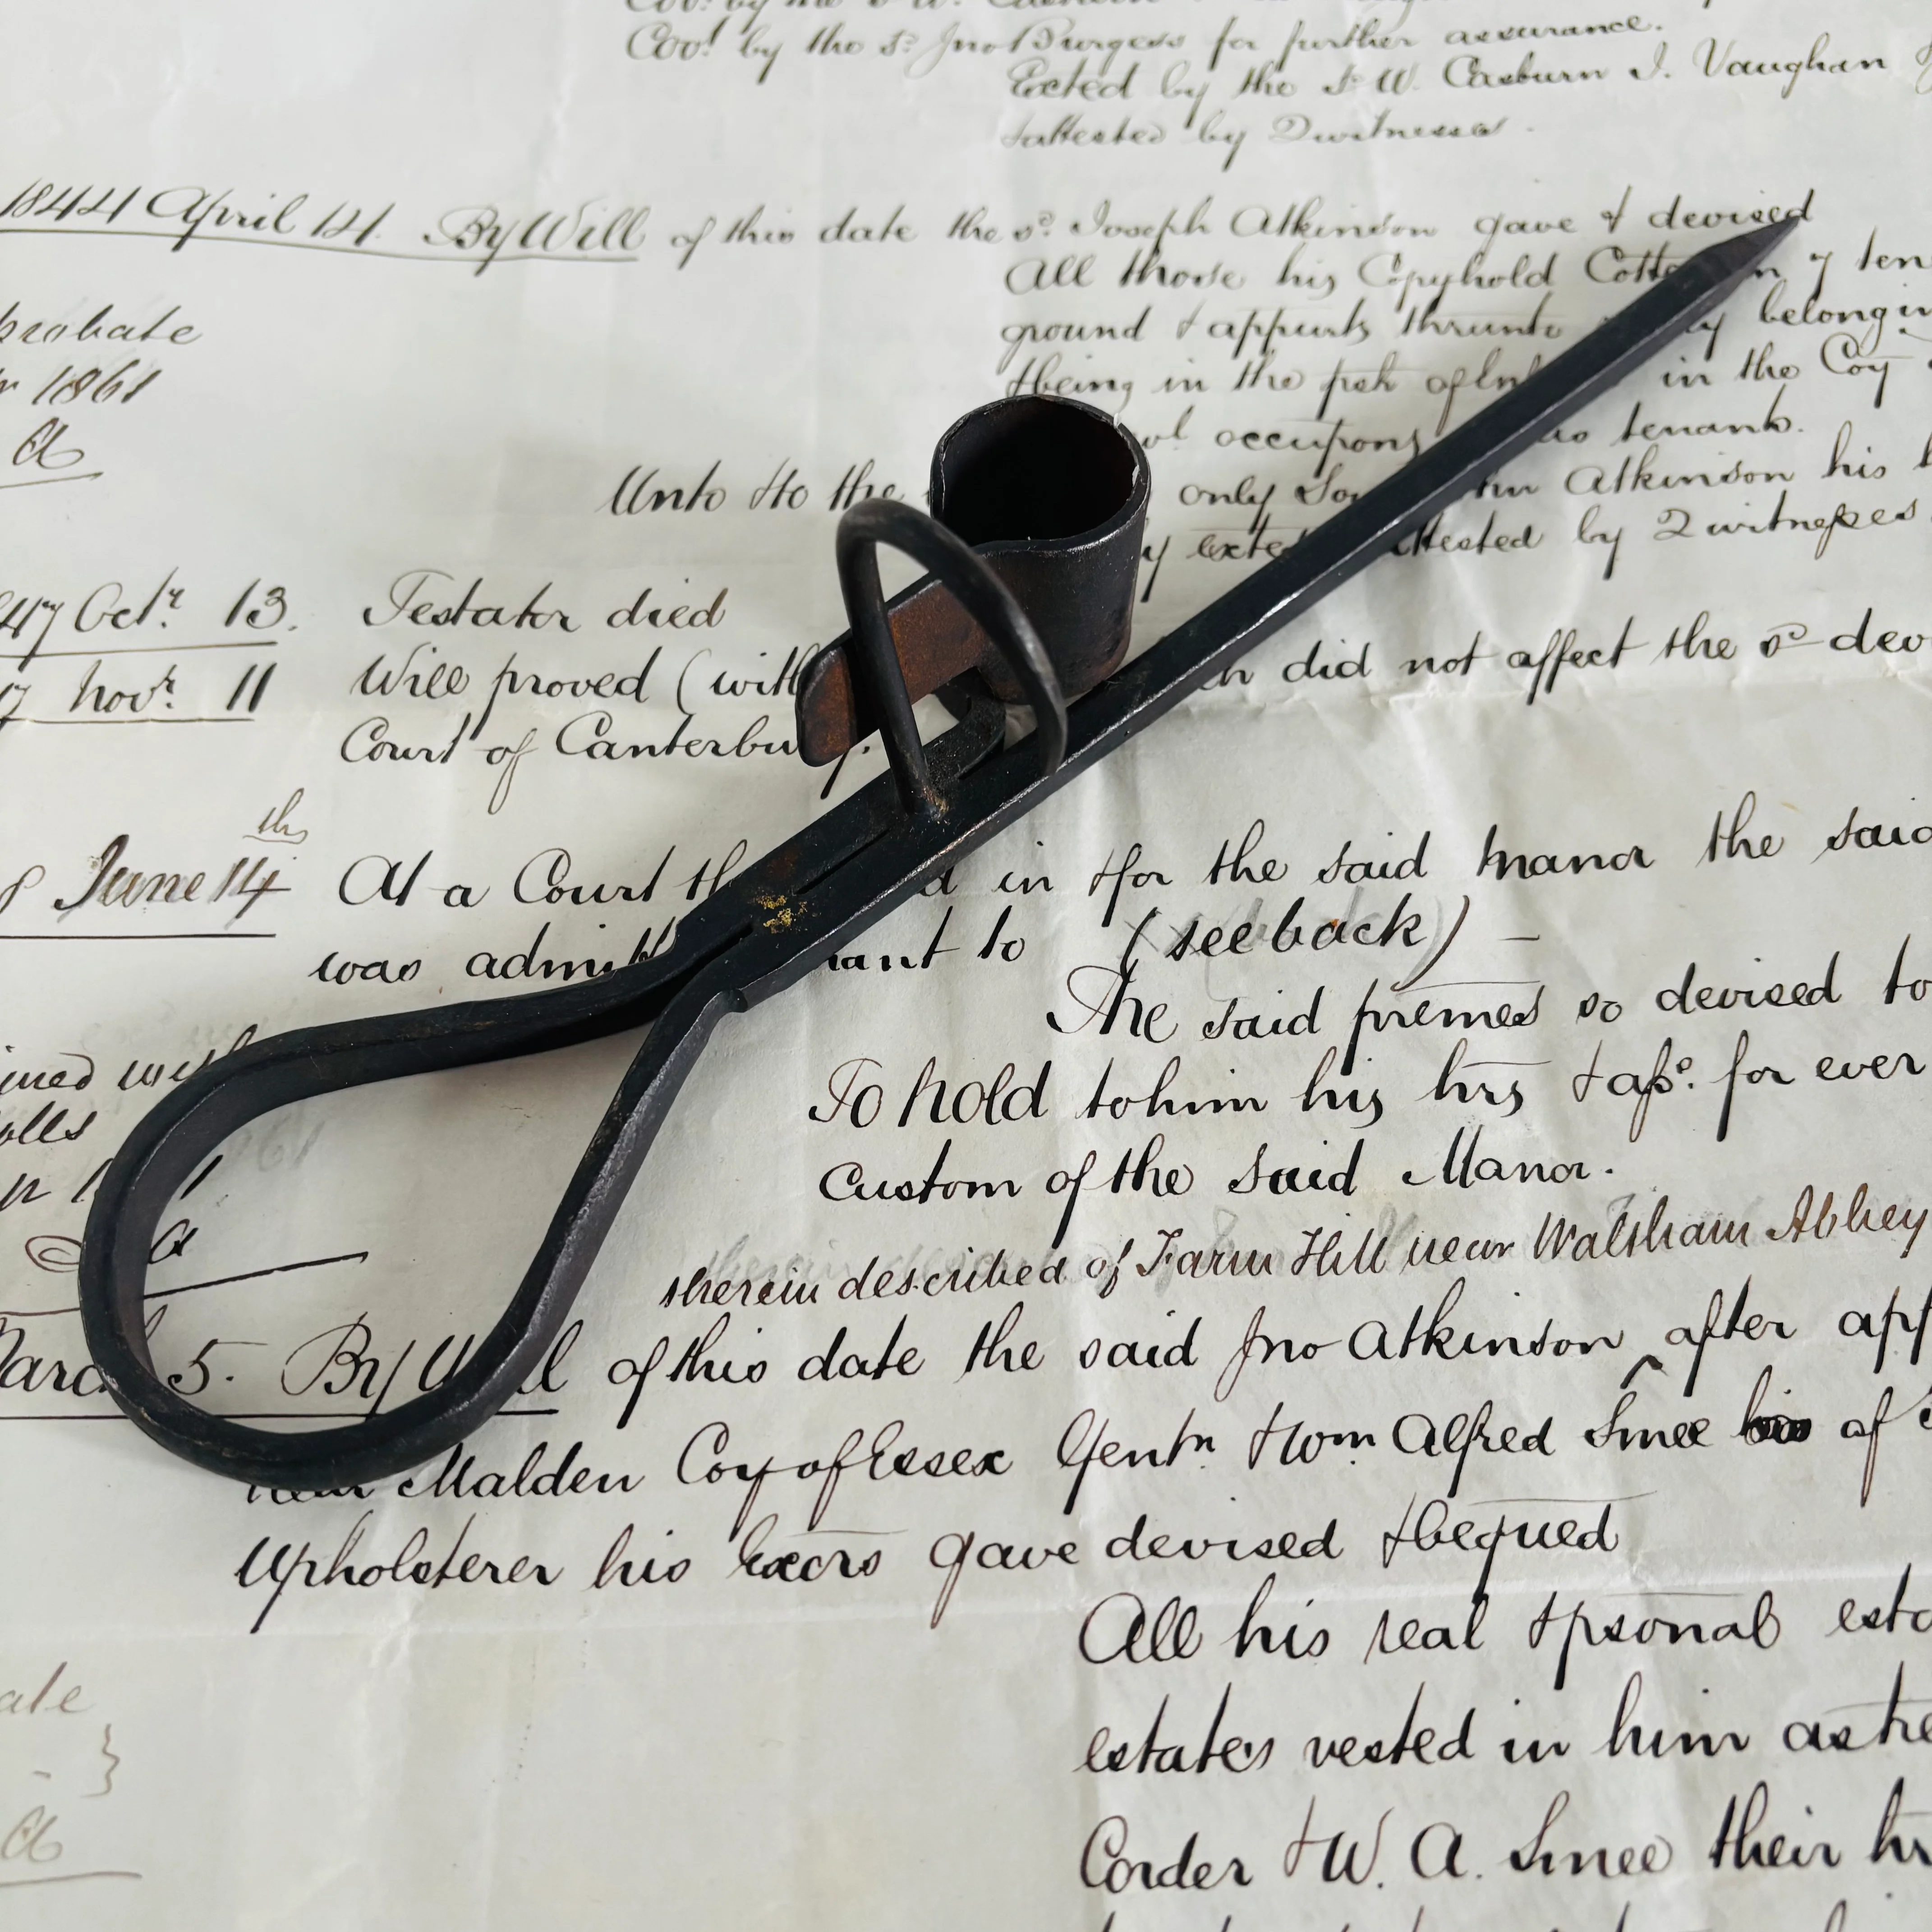 Cov.t by the s.d Jno Burgess for further assurance.
Exted by the s.d W. Casburn J. Vaughan
& attested by 2 witnesses.
1844 April 14. By Will of this date the s.d Joseph Atkinson gave & devised
All those his Copyhold
ground & appurts thrunto belongin
probate
& being in the psh of in the Coy
r 1861
occupons tenants.
a
Unto & to the only Atkinson his
attested by 2 witnesses
47 Octr. 13. Testator died
did not affect the sd dev
7 Novr. 11 Will proved (with
Court of Canterbu
8 June 14th At a Court in & for the said Manor the said
was to (see back) –
The said premes so devised to
To hold to him his hrs & ass. for ever
Custom of the said Manor.
therein described of Farm Hill near Waltham Abbey
5. By Will of this date the said Jno Atkinson ^ after app
near Malden Coy of Essex Gentn. & Wm. Alfred Smee of
Upholsterer his Exors gave devised & bequed
All his real & psonal esta
estates vested in him as tre
Corder & W. A. Smee their hr